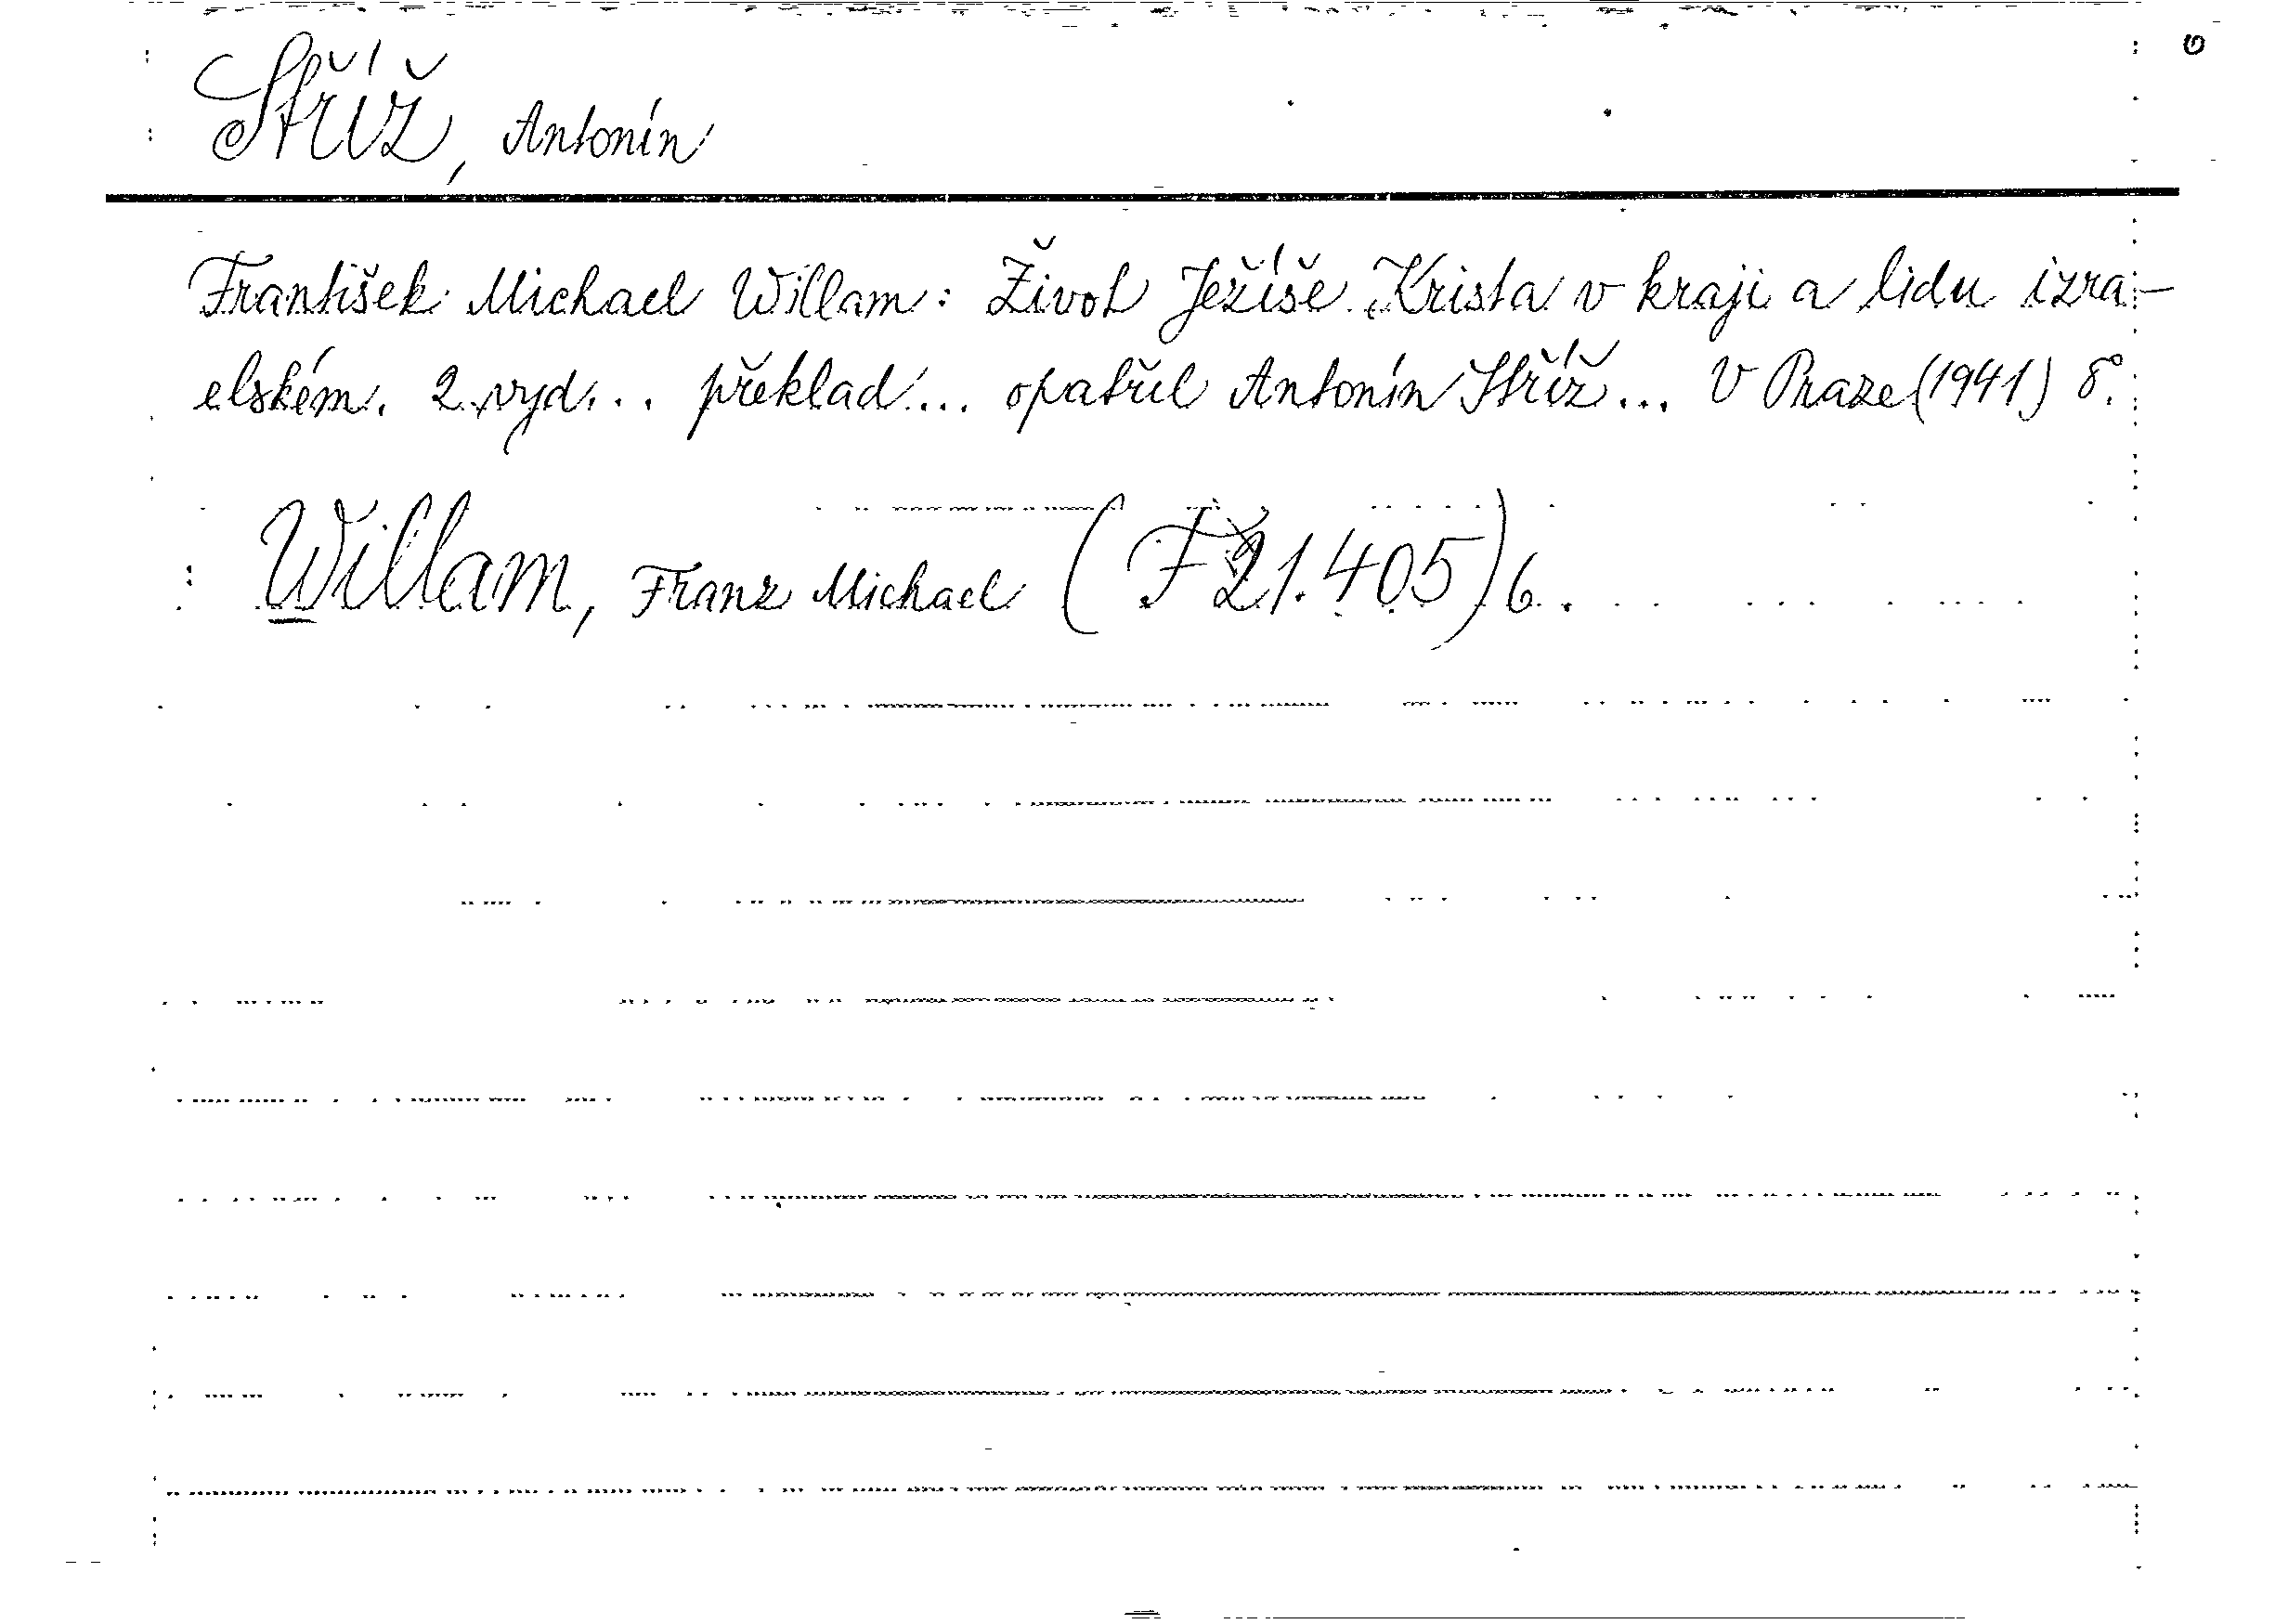 Stříž, Antonín
František Michael Willam: Život Ježíše Krista v kraji a lidu izra-
elském. 2. vyd... překlad... opatřil Antonín Stříž... V Praze (1941) 8°.
Willam, Franz Michael (F 21.405) 6.